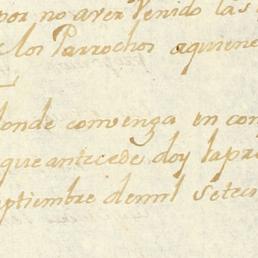 por no aver Venido las
los Parrochos aquiene
donde convenga en con
que antecede doy lapre
ptiembre demil setec